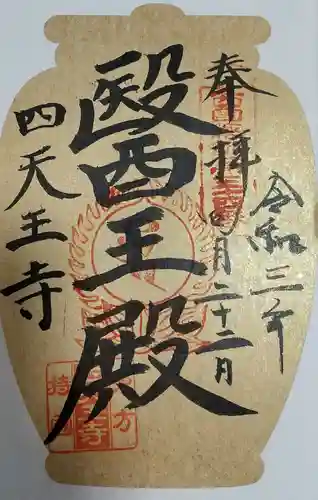 令和三年
奉拝
四月二十二日
醫王殿
四天王寺